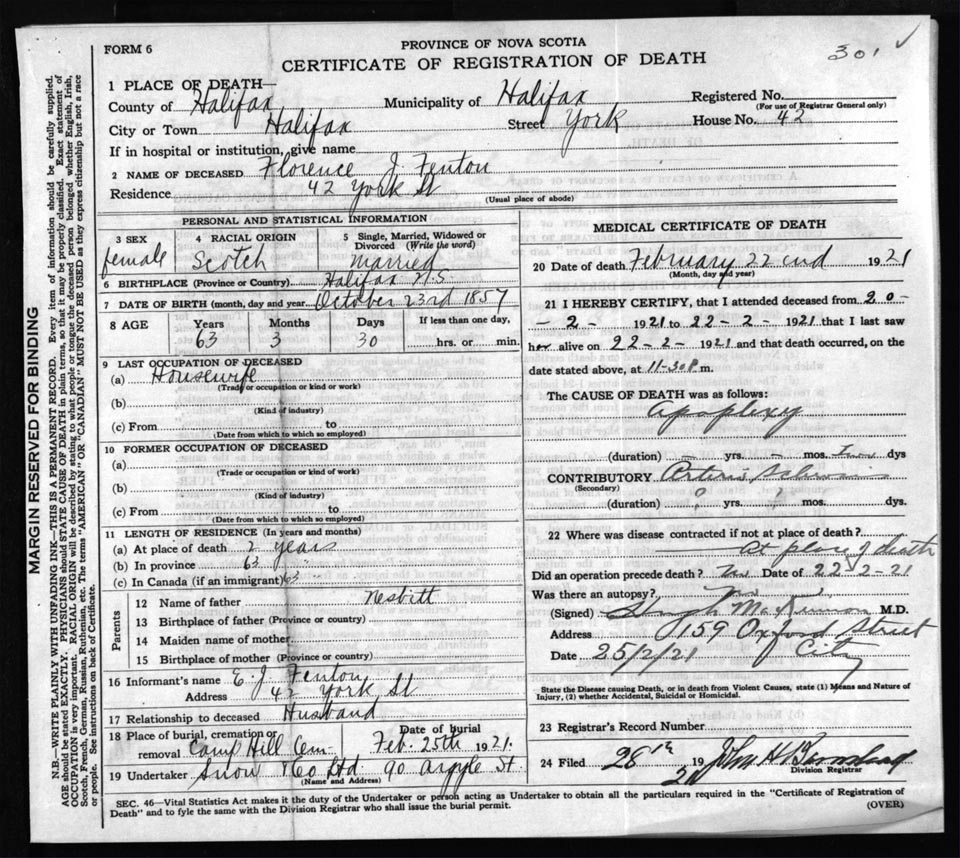 FORM 6
PROVINCE OF NOVA SCOTIA
CERTIFICATE OF REGISTRATION OF DEATH
301 ✓
1 PLACE OF DEATH—
County of Halifax Municipality of Halifax Registered No.
(For use of Registrar General only)
City or Town Halifax Street York House No. 42
If in hospital or institution, give name
2 NAME OF DECEASED Florence J. Fenton
Residence 42 York St
(Usual place of abode)
PERSONAL AND STATISTICAL INFORMATION
3 SEX female
4 RACIAL ORIGIN Scotch
5 Single, Married, Widowed or Divorced (Write the word) Married
6 BIRTHPLACE (Province or Country) Halifax N.S.
7 DATE OF BIRTH (month, day and year) October 23rd 1857
8 AGE Years Months Days If less than one day,
63 3 30 hrs. or min.
9 LAST OCCUPATION OF DECEASED
(a) Housewife
(Trade or occupation or kind or work)
(b)
(Kind of industry)
(c) From to
(Date from which to which so employed)
10 FORMER OCCUPATION OF DECEASED
(a)
(Trade or occupation or kind of work)
(b)
(Kind of industry)
(c) From to
(Date from which to which so employed)
11 LENGTH OF RESIDENCE (In years and months)
(a) At place of death 2 years
(b) In province 63 "
(c) In Canada (if an immigrant) 63
Parents
12 Name of father Nesbitt
13 Birthplace of father (Province or country)
14 Maiden name of mother
15 Birthplace of mother (Province or country)
16 Informant's name E. J. Fenton
Address 42 York St
17 Relationship to deceased Husband
18 Place of burial, cremation or removal Camp Hill Cem Date of burial Feb. 25th 1921.
19 Undertaker Snow & Co Ltd 90 Argyle St.
(Name and Address)
MEDICAL CERTIFICATE OF DEATH
20 Date of death February 22nd 1921
(Month, day and year)
21 I HEREBY CERTIFY, that I attended deceased from 20-
-2- 1921 to 22-2- 1921 that I last saw
her alive on 22-2- 1921 and that death occurred, on the
date stated above, at 11-30 P. m.
The CAUSE OF DEATH was as follows:
Apoplexy
(duration) - yrs. - mos. Two dys
CONTRIBUTORY
(Secondary)
(duration) ? yrs. ? mos. dys.
22 Where was disease contracted if not at place of death?
At place of death
Did an operation precede death? No Date of 22-2-21
Was there an autopsy? No
(Signed) MacKinnon M.D.
Address 159 Oxford Street
Date 25/2/21 City
State the Disease causing Death, or in death from Violent Causes, state (1) Means and Nature of
Injury, (2) whether Accidental, Suicidal or Homicidal.
23 Registrar's Record Number
24 Filed 28th 19 21 John H.
Division Registrar
SEC. 46—Vital Statistics Act makes it the duty of the Undertaker or person acting as Undertaker to obtain all the particulars required in the "Certificate of Registration of
Death" and to fyle the same with the Division Registrar who shall issue the burial permit.
(OVER)
MARGIN RESERVED FOR BINDING
N.B.—WRITE PLAINLY WITH UNFADING INK—THIS IS A PERMANENT RECORD. Every item of information should be carefully supplied.
AGE should be stated EXACTLY. PHYSICIANS should STATE CAUSE OF DEATH in plain terms, so that it may be properly classified. Exact statement of
OCCUPATION is very important. RACIAL ORIGIN will be described by stating to what people or tongue the deceased person belonged whether English, Irish,
Scotch, French, German, Russian, Ruthenian, etc. The terms "AMERICAN" or "CANADIAN" MUST NOT BE USED as they express citizenship but not a race
or people. See instructions on back of Certificate.